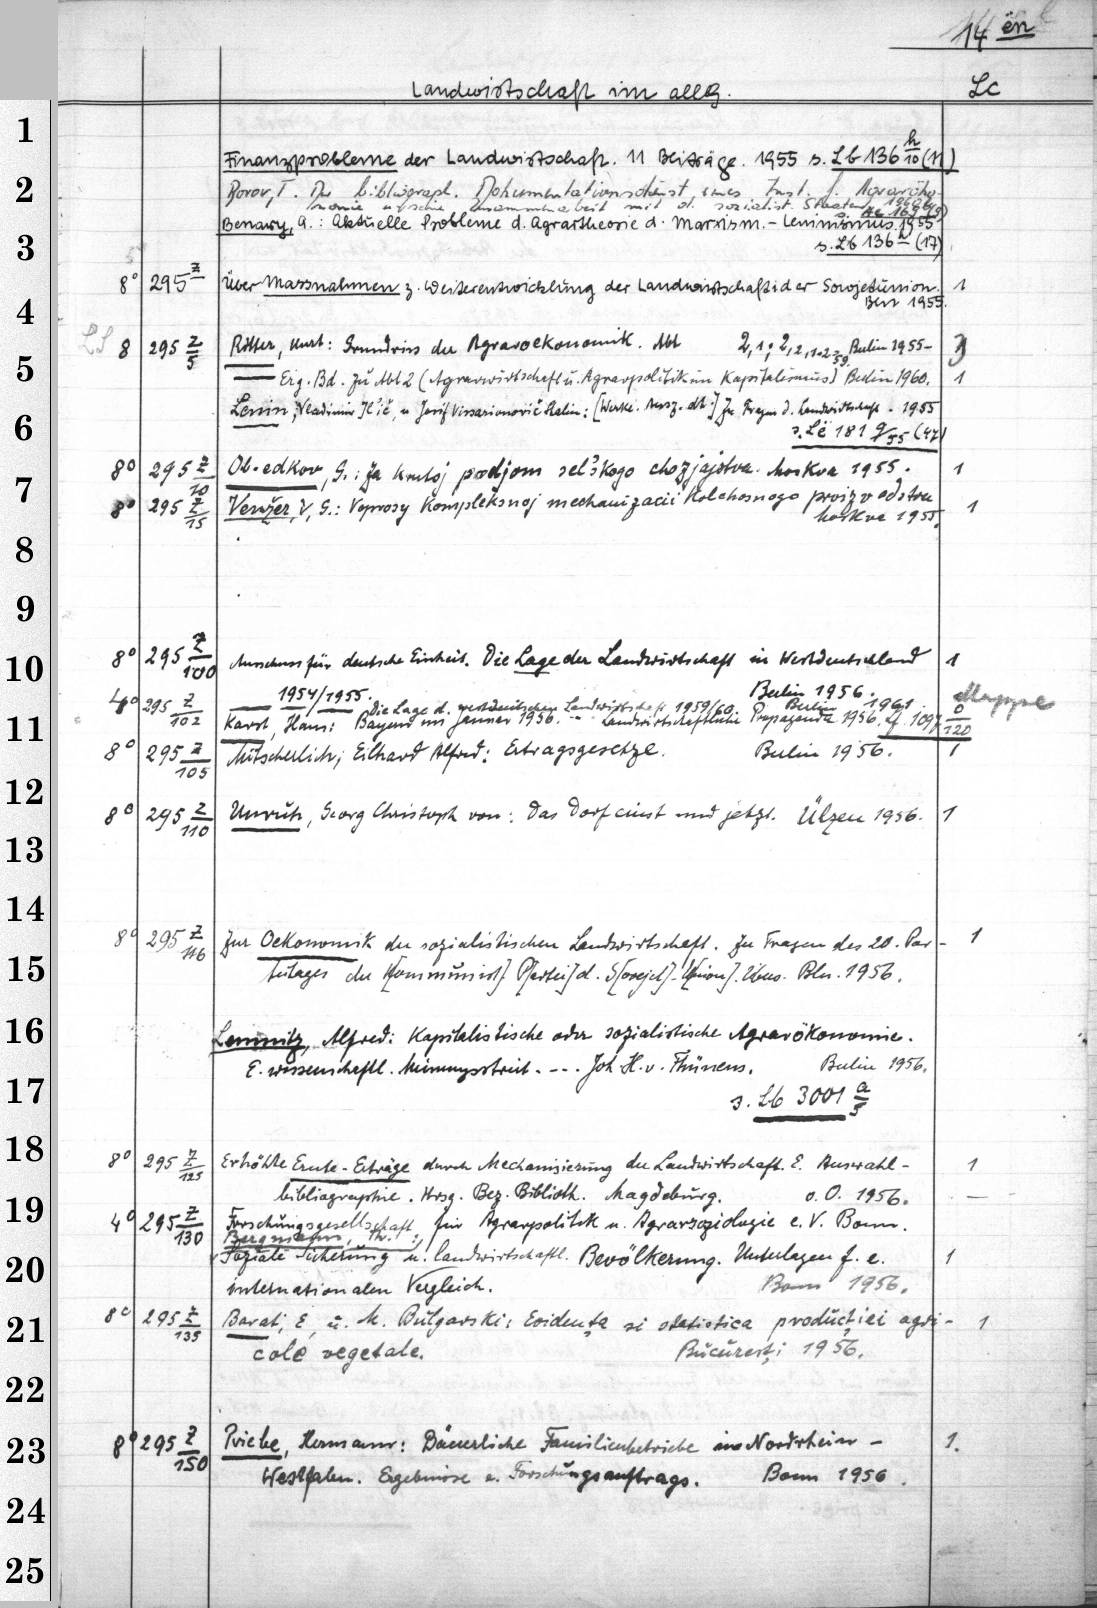 14 en
Landwirtschaft im allg. Lc
1
Finanzprobleme der Landwirtschaft. 11 Beiträge. 1955 s. Lb 136 h/10 (11)
2
Borov, T. Die bibliograph. Dokumentationsdienst eines Inst. f. Agraröko-
nomie u. seine Zusammenarbeit mit d. sozialist. Staaten.
Benary, A.: Aktuelle Probleme d. Agrartheorie d. Marxism.-Leninismus. 1955
3
s. Lb 136 h (17)
8° 295 z Über Massnahmen z. Weiterentwicklung der Landwirtschaft i. d. er Sowjetunion. 1
4
Berl 1955.
LS 8 295 z/5 Ritter, Kurt: Grundriss der Agraroekonomik. Abt 2,1; 2,2,1.2-59. Berlin 1955- 3
5
Erg. Bd. zu Abt 2 (Agrarwirtschaft u. Agrarpolitik im Kapitalismus) Berlin 1960. 1
Lenin, Vladimir Il'ič, u Josif Vissarionovič Stalin: [Werke. Ausz. dt.] Zu Fragen d. Landwirtschaft. 1955
6
s. Lë 181 g/55 (47)
8° 295 z/10 Ob-edkov, G.: Za krutoj podjom sel'skogo chozjajstva. Moskva 1955. 1
7
8° 295 z/15 Venžer, V, G.: Voprosy kompleksnoj mechanizacii kolchosnogo proizvodstva
Moskva 1955. 1
8
9
8° 295 z/100 Ausschuss für deutsche Einheit. Die Lage der Landwirtschaft in Westdeutschland 1
10
1954/1955. Berlin 1956.
Die Lage d. westdeutschen Landwirtschaft 1959/60. Berlin 1961 Mappe
4° 295 z/102 Karst, Hans: Bayern im Januar 1956. -- Landwirtschaftliche Propaganda 1956. 4f. 1097 0/120
11
8° 295 z/105 Mitscherlich, Eilhard Alfred: Ertragsgesetze. Berlin 1956. 1
12
8° 295 z/110 Unruh, Georg Christoph von: Das Dorf einst und jetzt. Ülzen 1956. 1
13
14
8° 295 z/116 Zur Oekonomik der sozialistischen Landwirtschaft. Zu Fragen des 20. Par- 1
15
teitages der K[ommunist] P[artei] d. S[owjet]-U[nion]. Übers. Bln. 1956.
16
Lemnitz, Alfred: Kapitalistische oder sozialistische Agrarökonomie.
E. wissenschaftl. Meinungsstreit. --- Joh. H. v. Thünens. Berlin 1956.
17
s. Lb 3001 a/5
18
8° 295 z/125 Erhöhte Ernte-Erträge durch Mechanisierung der Landwirtschaft. E. Auswahl- 1
bibliographie. Hrsg. Bez. Biblioth. Magdeburg. o. O. 1956. —
19
4° 295 z/130 Forschungsgesellschaft für Agrarpolitik u. Agrarsoziologie e. V. Bonn.
Bergmann, Th.:
Soziale Sicherung u. landwirtschaftl. Bevölkerung. Unterlagen f. e. 1
20
internationalen Vergleich. Bonn 1956.
8° 295 z/135 Barat, E, u. M. Bulgarski: Evidenţa si statistica producţiei agri- 1
21
cole vegetale. Bucureşti 1956.
22
8° 295 z/150 Priebe, Hermann: Bäuerliche Familienbetriebe in Nordrhein- 1.
23
Westfalen. Ergebnisse e. Forschungsauftrags. Bonn 1956.
24
25